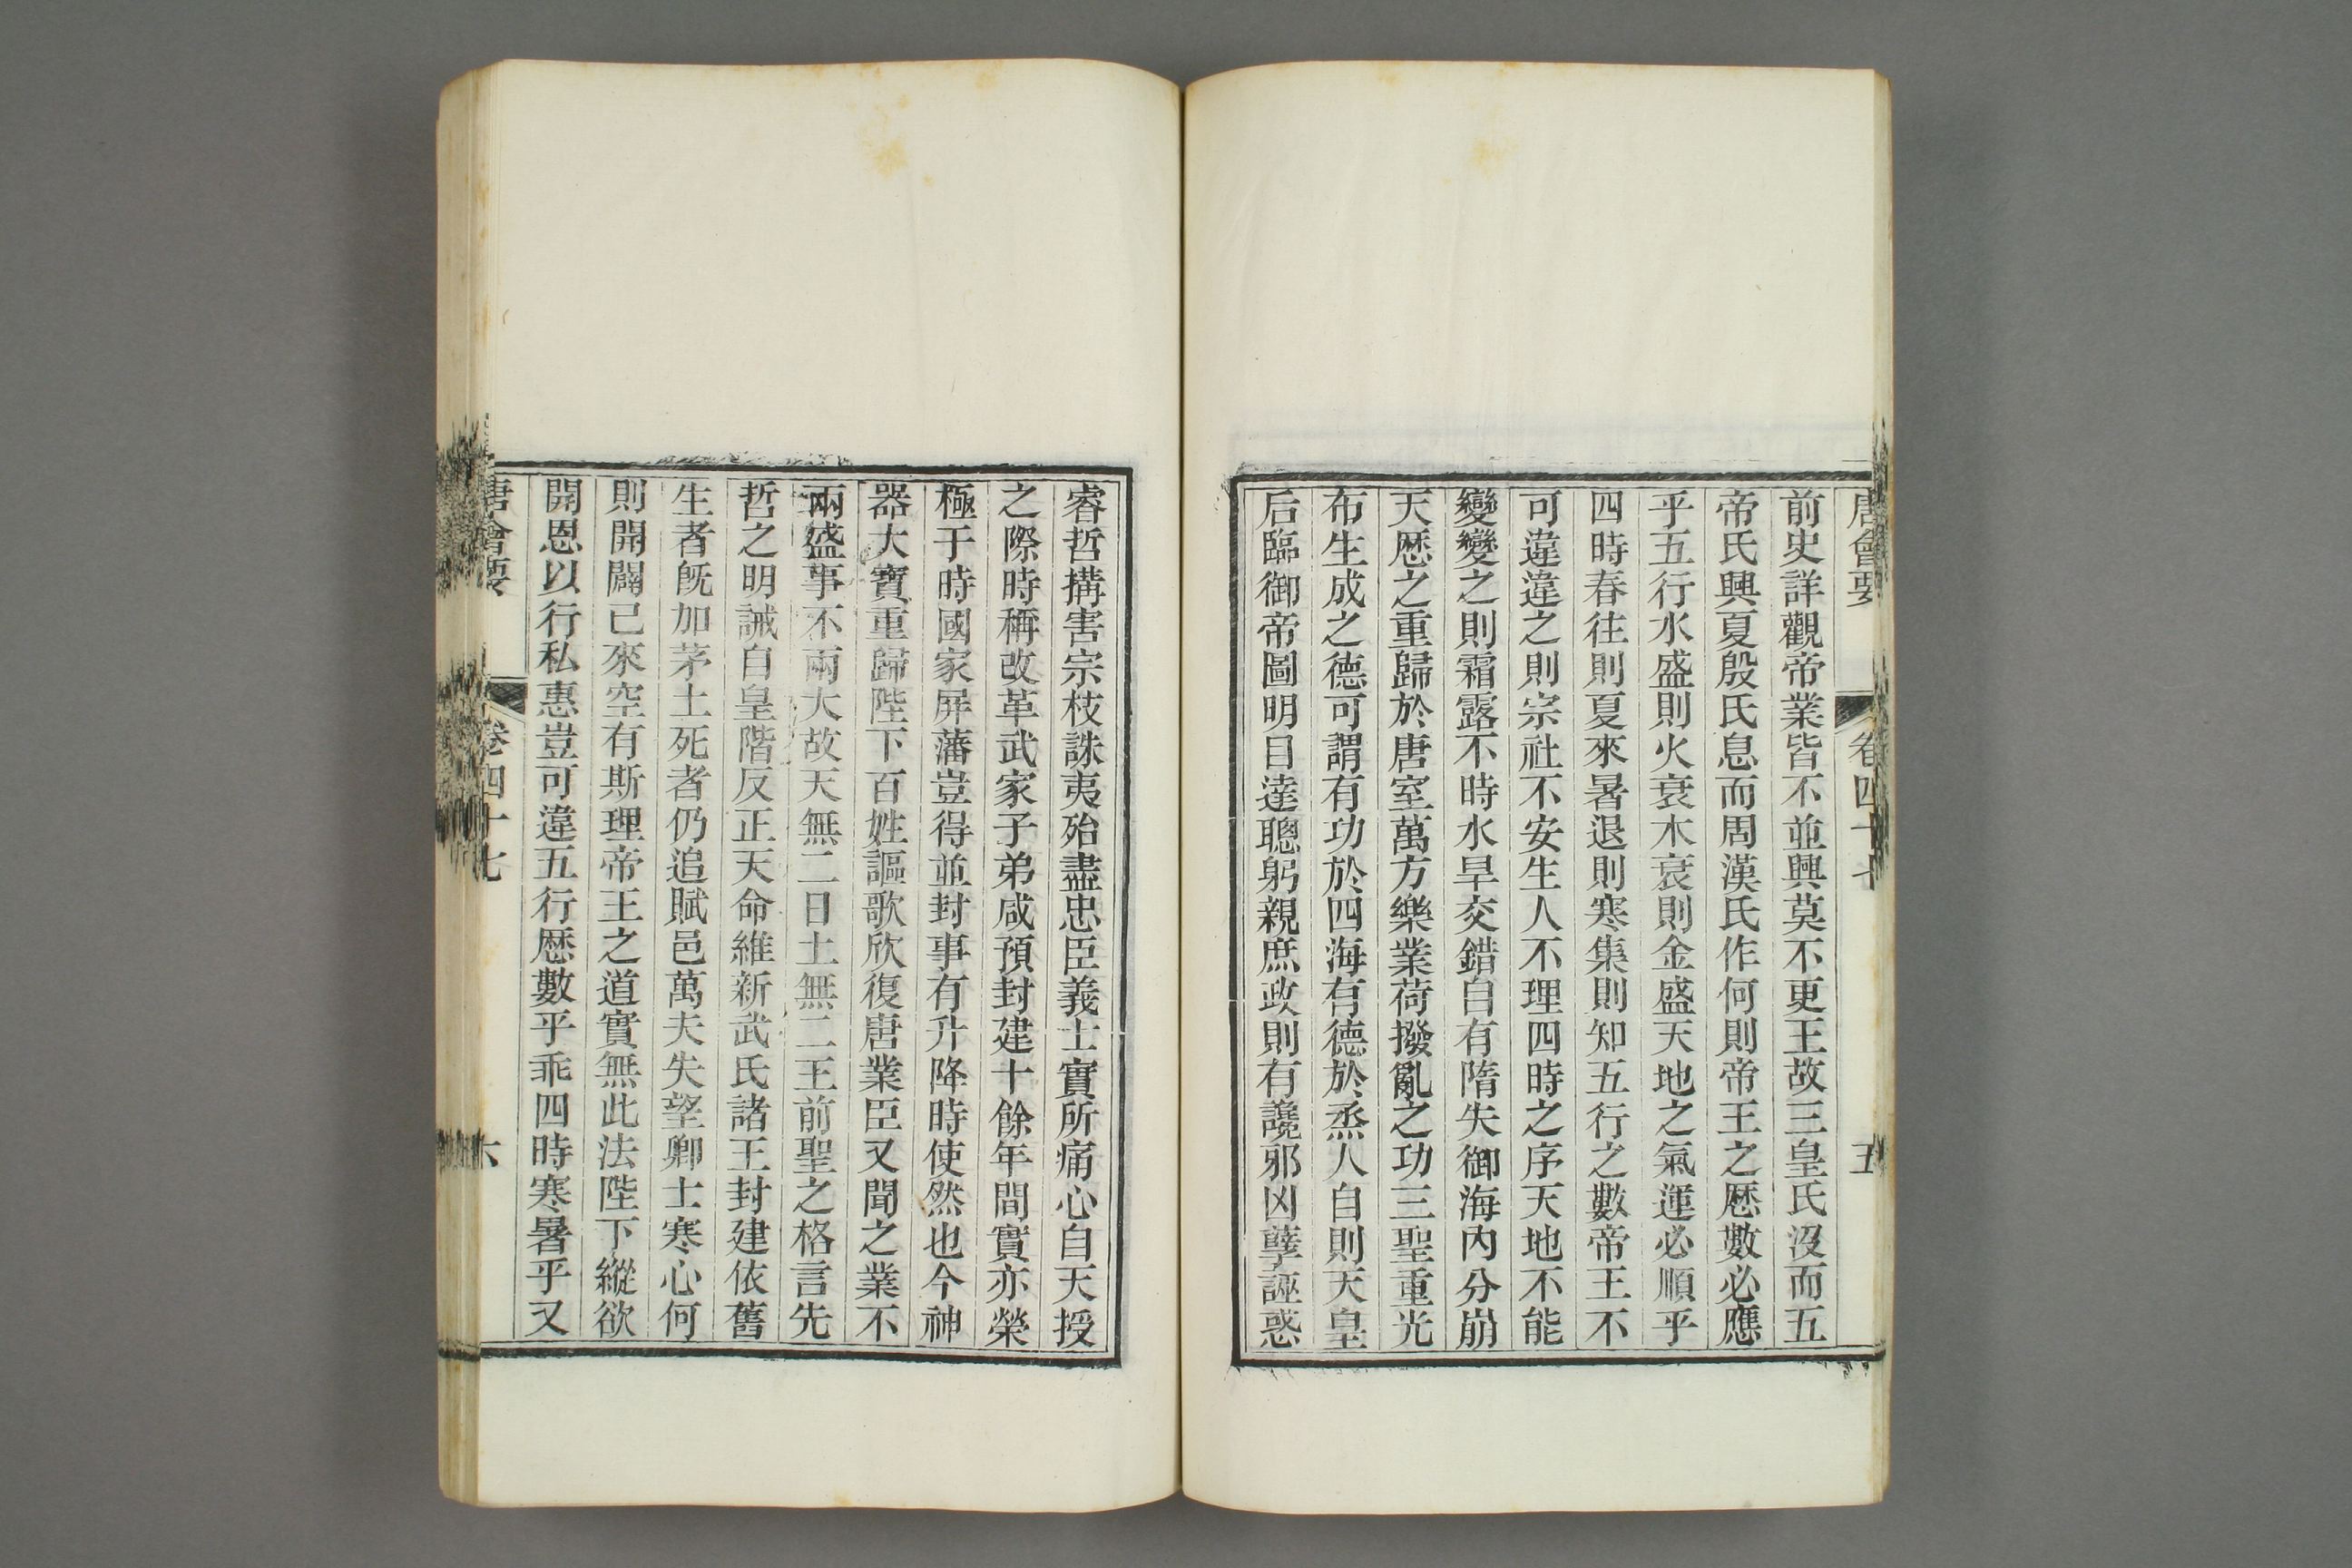 唐會要 卷四十七 五
前史詳觀帝業皆不並興莫不更王故三皇氏沒而五
帝氏興夏殷氏息而周漢氏作何則帝王之歷數必應
乎五行水盛則火衰木衰則金盛天地之氣運必順乎
四時春往則夏來暑退則寒集則知五行之數帝王不
可違違之則宗社不安生人不理四時之序天地不能
變變之則霜露不時水旱交錯自有隋失御海內分崩
天歷之重歸於唐室萬方樂業荷撥亂之功三聖重光
布生成之德可謂有功於四海有德於烝人自則天皇
后臨御帝圖明目達聰躬親庶政則有讒邪凶孽誣惑
睿哲搆害宗枝誅夷殆盡忠臣義士實所痛心自天授
之際時稱改革武家子弟咸預封建十餘年間實亦榮
極于時國家屏藩豈得並封事有升降時使然也今神
器大寶重歸陛下百姓謳歌欣復唐業臣又聞之業不
兩盛事不兩大故天無二日土無二王前聖之格言先
哲之明誡自皇階反正天命維新武氏諸王封建依舊
生者旣加茅土死者仍追賦邑萬夫失望卿士寒心何
則開闢已來空有斯理帝王之道實無此法陛下縱欲
開恩以行私惠豈可違五行歷數乎乖四時寒暑乎又
唐會要 卷四十七 六